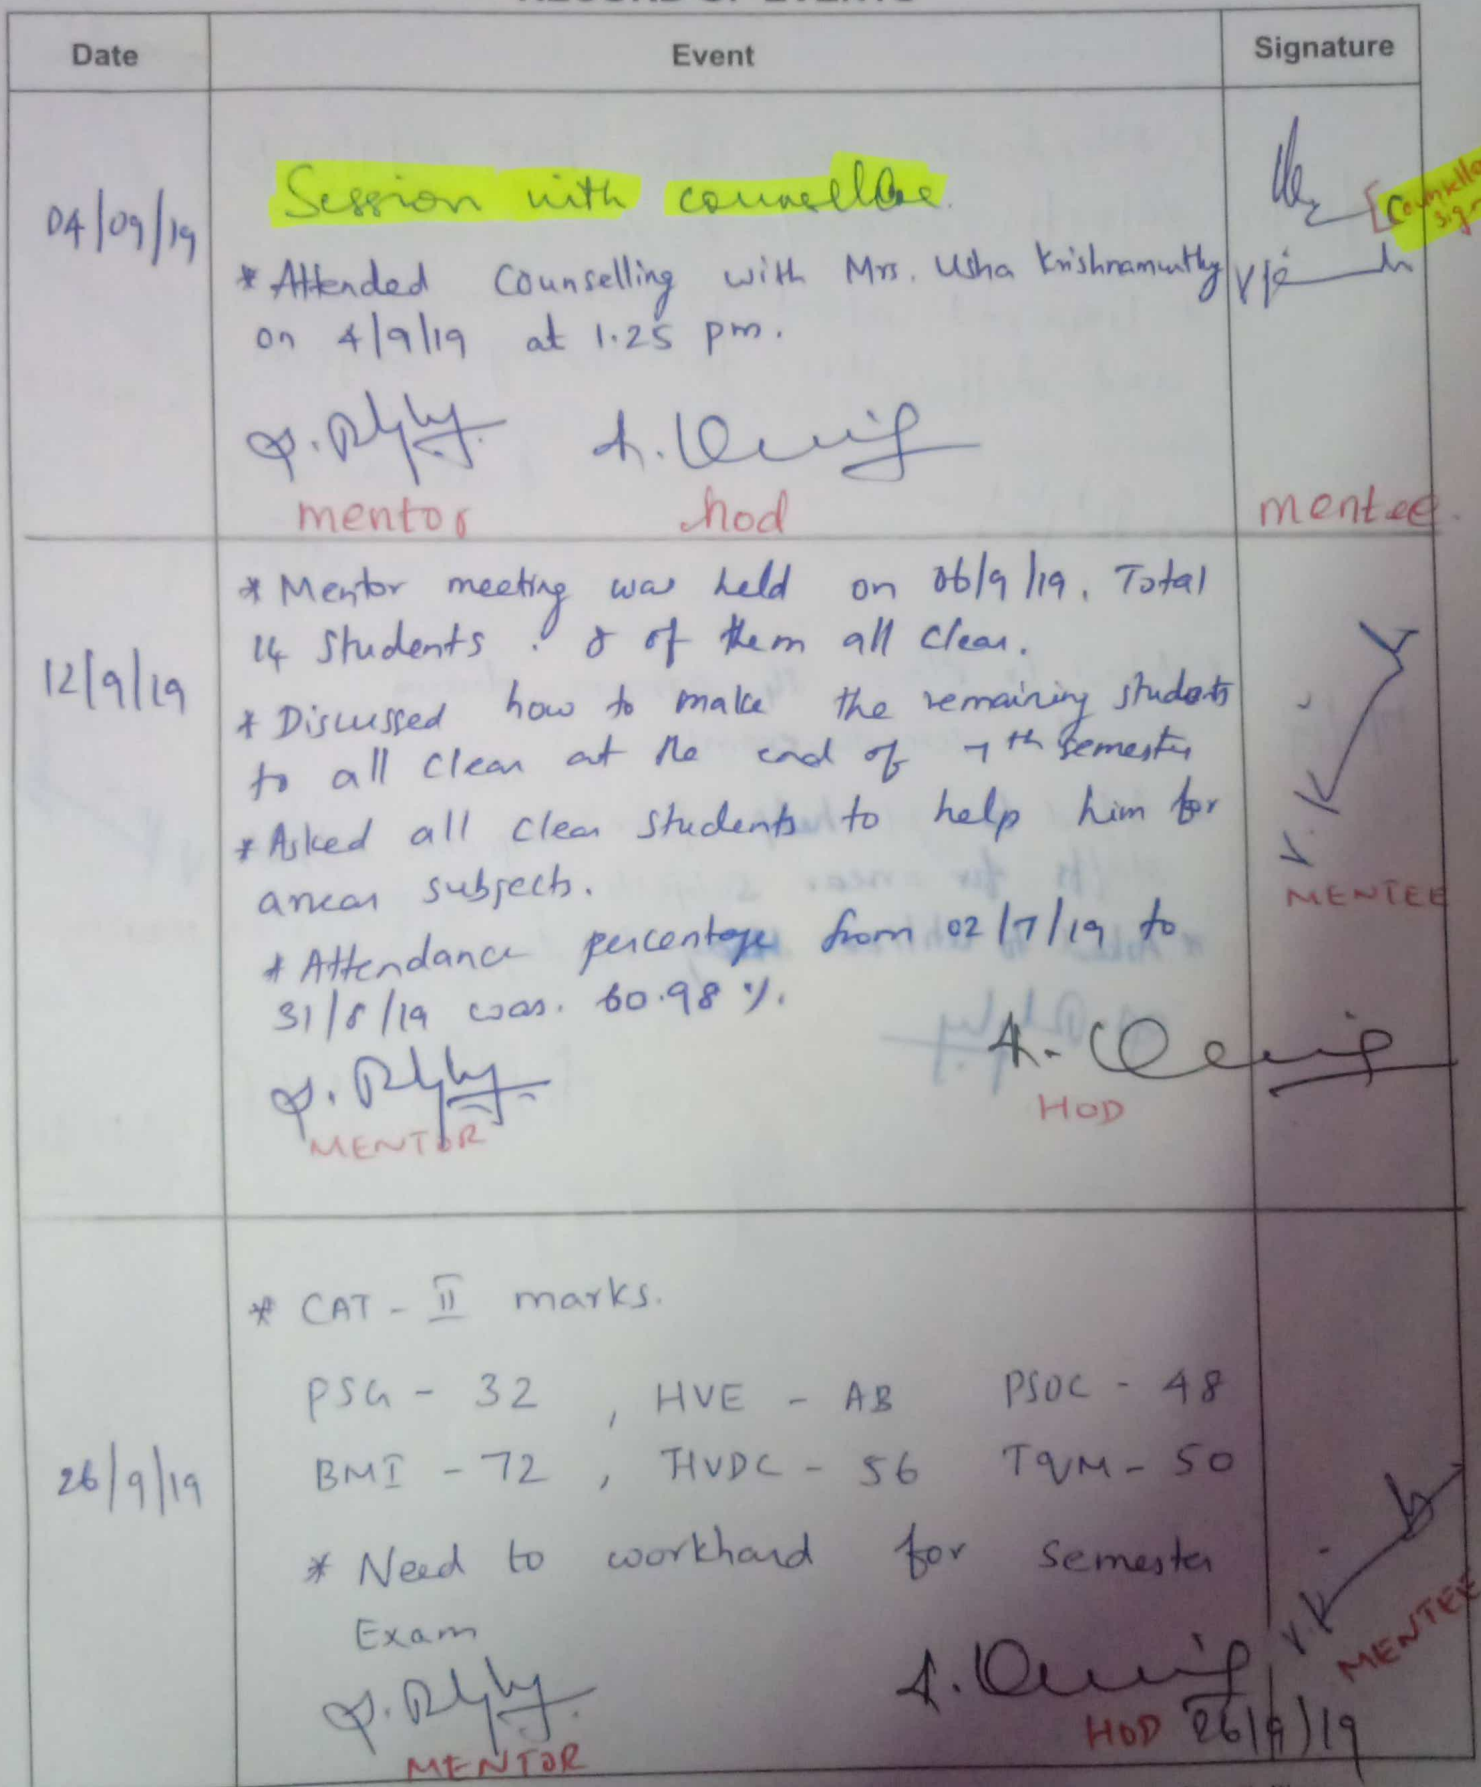 RECORD OF EVENTS
Date Event Signature
04/09/19
Session with counsellor.
[Counsellor
sign
* Attended counselling with Mrs. Usha Krishnamurthy
on 4/9/19 at 1.25 pm.
mentor hod mentee.
12/9/19
* Mentor meeting was held on 06/9/19. Total
14 students . 8 of them all clear.
* Discussed how to make the remaining students
to all clear at the end of 7th semester
* Asked all clear students to help him for
arrear subjects.
* Attendance percentage from 02/7/19 to
31/8/19 was. 60.98 %.
MENTEE
MENTOR HOD
26/9/19
* CAT - II marks.
PSG - 32 , HVE - AB PSOC - 48
BMI - 72 , HVDC - 56 TQM - 50
* Need to workhard for semester
Exam
MENTEE
MENTOR HOD 26/9/19